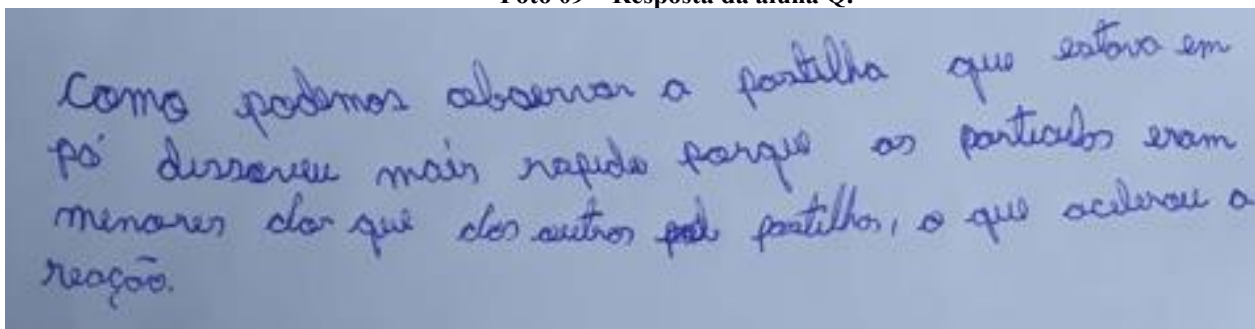 Foto 09 – Resposta da aluna Q.
Como podemos observar a pastilha que estava em
pó dissoveu mais rapido porque as particulas eram
menores das que das outras pastilhas, o que acelerou a
reação.